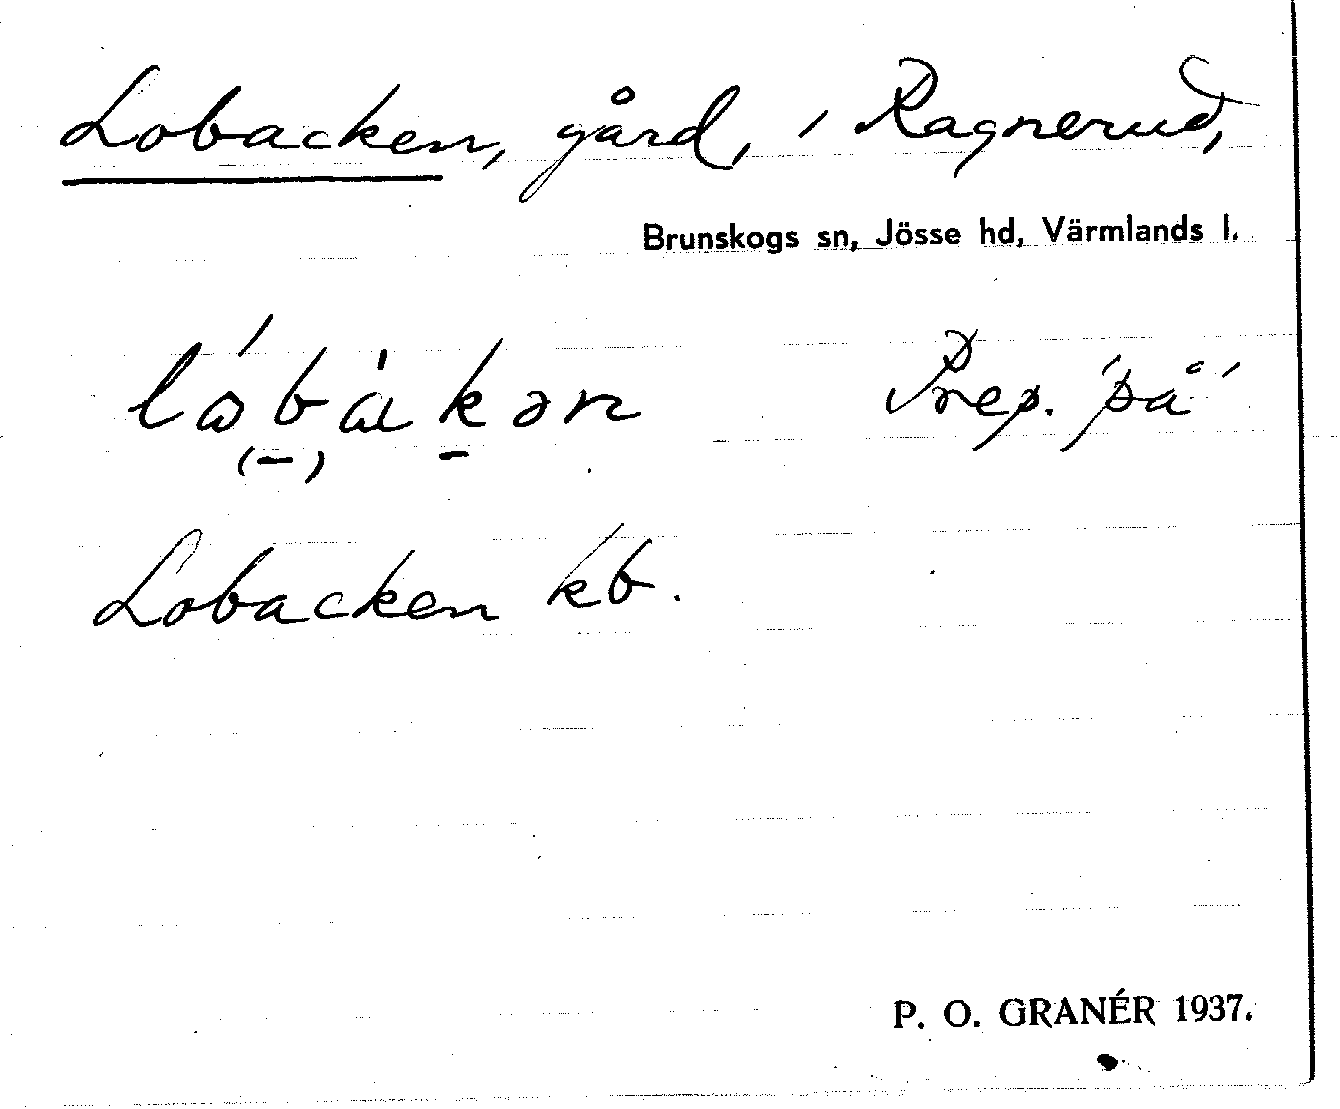 Lobacken, gård, i Ragnerud,
Brunskogs sn, Jösse hd, Värmlands l.
lóbàkən Prep. 'på'
(–) –
Lobacken kb.
P. O. GRANÉR 1937.